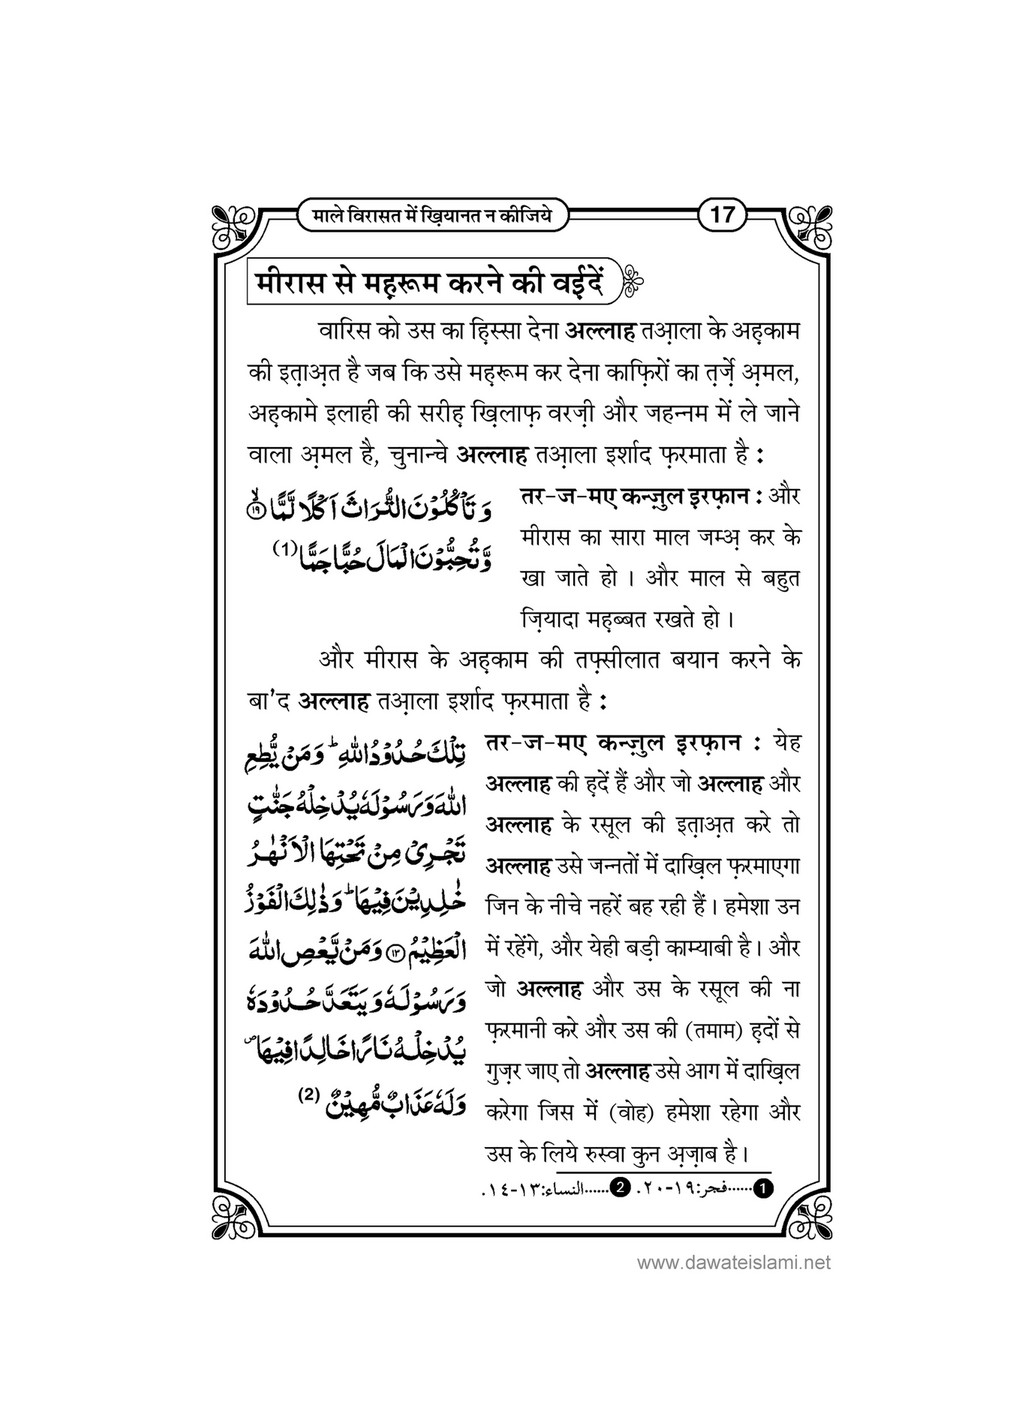 माले विरासत में ख़ियानत न कीजिये
17
मीरास से महरूम करने की वईदें
वारिस को उस का हि़स्सा देना अल्लाह तआ़ला के अह़काम
की इत़ाअ़त है जब कि उसे मह़रूम कर देना काफ़िरों का त़र्ज़े अ़मल,
अह़कामे इलाही की सरीह़ ख़िलाफ़ वरज़ी और जहन्नम में ले जाने
वाला अ़मल है, चुनान्चे अल्लाह तआ़ला इर्शाद फ़रमाता है :
وَ تَاۡكُلُوۡنَ التُّرَاثَ اَكۡلًا لَّمًّا ۙ﴿۱۹﴾
وَّ تُحِبُّوۡنَ الۡمَالَ حُبًّا جَمًّا (1)
तर-ज-मए कन्ज़ुल इरफ़ान : और
मीरास का सारा माल जम्अ़ कर के
खा जाते हो । और माल से बहुत
ज़ियादा मह़ब्बत रखते हो ।
और मीरास के अह़काम की तफ़्सीलात बयान करने के
बा'द अल्लाह तआ़ला इर्शाद फ़रमाता है :
تِلۡكَ حُدُوۡدُ اللّٰهِ ؕ وَ مَنۡ يُّطِعِ
اللّٰهَ وَ رَسُوۡلَهٗ يُدۡخِلۡهُ جَنّٰتٍ
تَجۡرِىۡ مِنۡ تَحۡتِهَا الۡاَنۡهٰرُ
خٰلِدِيۡنَ فِيۡهَا ؕ وَ ذٰلِكَ الۡفَوۡزُ
الۡعَظِيۡمُ ﴿۱۳﴾ وَ مَنۡ يَّعۡصِ اللّٰهَ
وَ رَسُوۡلَهٗ وَ يَتَعَدَّ حُدُوۡدَهٗ
يُدۡخِلۡهُ نَارًا خَالِدًا فِيۡهَا ۪
وَ لَهٗ عَذَابٌ مُّهِيۡنٌ (2)
तर-ज-मए कन्ज़ुल इरफ़ान : येह
अल्लाह की ह़दें हैं और जो अल्लाह और
अल्लाह के रसूल की इत़ाअ़त करे तो
अल्लाह उसे जन्नतों में दाख़िल फ़रमाएगा
जिन के नीचे नहरें बह रही हैं । हमेशा उन
में रहेंगे, और येही बड़ी काम्याबी है । और
जो अल्लाह और उस के रसूल की ना
फ़रमानी करे और उस की (तमाम) ह़दों से
गुज़र जाए तो अल्लाह उसे आग में दाख़िल
करेगा जिस में (वोह) हमेशा रहेगा और
उस के लिये रुस्वा कुन अ़ज़ाब है ।
1......فجر:١٩-٢٠. 2......النساء:١٣-١٤.
www.dawateislami.net